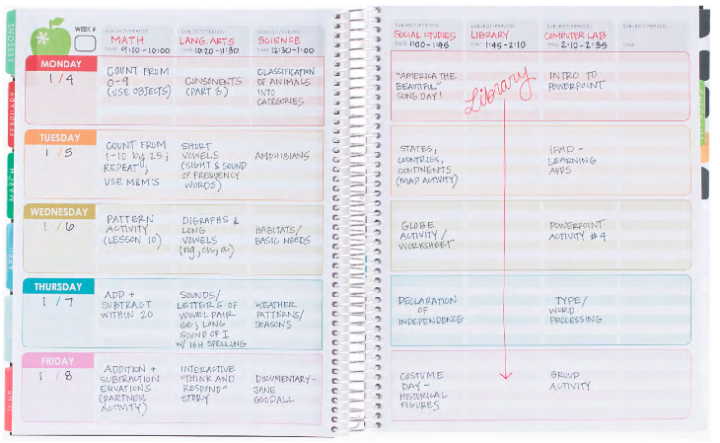 LESSONS
FEBRUARY
MARCH
APRIL
JUNE
WEEK #
SUBJECT/PERIOD:
MATH
TIME: 9:10-10:00
SUBJECT/PERIOD:
LANG. ARTS
TIME: 10:20-11:30
SUBJECT/PERIOD:
SCIENCE
TIME: 12:30-1:00
MONDAY
1/4
COUNT FROM
0-9
(USE OBJECTS)
CONSONENTS
(PART 3)
CLASSIFICATION
OF ANIMALS
INTO
CATEGORIES
TUESDAY
1/5
COUNT FROM
1-10 by 25;
REPEAT;
USE M&M'S
SHORT
VOWELS
(SIGHT & SOUND
OF FREQUENCY
WORDS)
AMPHIBIANS
WEDNESDAY
1/6
PATTERN
ACTIVITY
(LESSON 10)
DIGRAPHS &
LONG
VOWELS
HABITATS/
BASIC NEEDS
THURSDAY
1/7
ADD +
SUBTRACT
WITHIN 20
SOUNDS/
LETTERS OF
VOWEL PAIR
ee; LONG
SOUND OF I
W/ IGH SPELLING
WEATHER
PATTERNS/
SEASONS
FRIDAY
1/8
ADDITION +
SUBTRACTION
EQUATIONS
(PARTNER
ACTIVITY)
INTERACTIVE
"THINK AND
RESPOND"
STORY
DOCUMENTARY-
JANE
GOODALL
SUBJECT/PERIOD:
SOCIAL STUDIES
TIME: 1:00-1:45
SUBJECT/PERIOD:
LIBRARY
TIME: 1:45-2:10
SUBJECT/PERIOD:
COMPUTER LAB
TIME: 2:10-2:35
SUBJECT/PERIOD:
TIME:
"AMERICA THE
BEAUTIFUL"
SONG DAY!
Library
INTRO TO
POWERPOINT
STATES,
COUNTRIES,
CONTINENTS
(MAP ACTIVITY)
iPAD -
LEARNING
APPS
GLOBE
ACTIVITY/
WORKSHEET
POWERPOINT
ACTIVITY #4
DECLARATION
OF
INDEPENDENCE
TYPE/
WORD
PROCESSING
COSTUME
DAY-
HISTORICAL
FIGURES
GROUP
ACTIVITY